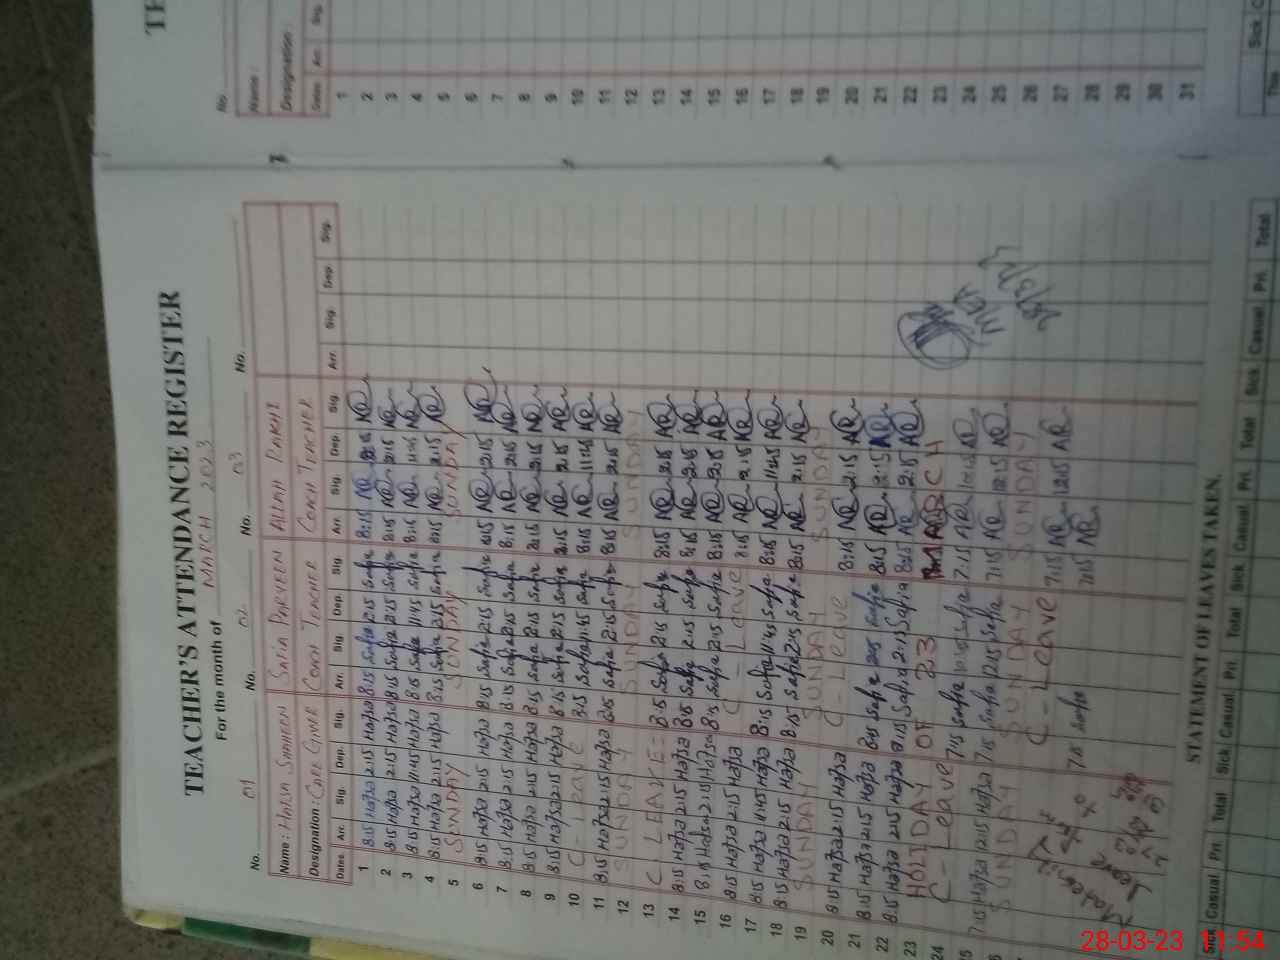 TEACHER'S ATTENDANCE REGISTER
For the month of MARCH 2023
No. 01 No. 02 No. 03 No.
Name: HAFSA SHAHEEN SAFIA PARVEEN ALLAH RAKHI
Designation: CARE GIVER COACH TEACHER COACH TEACHER
Dates Arr. Sig. Dep. Sig. Arr. Sig. Dep. Sig. Arr. Sig. Dep. Sig. Arr. Sig. Dep. Sig.
1 8:15 Hafsa 2:15 Hafsa 8:15 Safia 2:15 Safia 8:15 AR 2:15 AR
2 8:15 Hafsa 2:15 Hafsa 8:15 Safia 2:15 Safia 8:15 AR 2:15 AR
3 8:15 Hafsa 11:45 Hafsa 8:15 Safia 11:45 Safia 8:15 AR 11:45 AR
4 8:15 Hafsa 2:15 Hafsa 8:15 Safia 2:15 Safia 8:15 AR 2:15 AR
5 SUNDAY SUNDAY SUNDAY
6 8:15 Hafsa 2:15 Hafsa 8:15 Safia 2:15 Safia 8:15 AR 2:15 AR
7 8:15 Hafsa 2:15 Hafsa 8:15 Safia 2:15 Safia 8:15 AR 2:15 AR
8 8:15 Hafsa 2:15 Hafsa 8:15 Safia 2:15 Safia 8:15 AR 2:15 AR
9 8:15 Hafsa 2:15 Hafsa 8:15 Safia 2:15 Safia 8:15 AR 2:15 AR
10 C - Leave 8:15 Safia 11:45 Safia 8:15 AR 11:45 AR
11 8:15 Hafsa 2:15 Hafsa 8:15 Safia 2:15 Safia 8:15 AR 2:15 AR
12 SUNDAY SUNDAY SUNDAY
13 C LEAVE 8:15 Safia 2:15 Safia 8:15 AR 2:15 AR
14 8:15 Hafsa 2:15 Hafsa 8:15 Safia 2:15 Safia 8:15 AR 2:15 AR
15 8:15 Hafsa 2:15 Hafsa 8:15 Safia 2:15 Safia 8:15 AR 2:15 AR
16 8:15 Hafsa 2:15 Hafsa C - Leave 8:15 AR 2:15 AR
17 8:15 Hafsa 11:45 Hafsa 8:15 Safia 11:45 Safia 8:15 AR 11:45 AR
18 8:15 Hafsa 2:15 Hafsa 8:15 Safia 2:15 Safia 8:15 AR 2:15 AR
19 SUNDAY SUNDAY SUNDAY
20 8:15 Hafsa 2:15 Hafsa C - Leave 8:15 AR 2:15 AR
21 8:15 Hafsa 2:15 Hafsa 8:15 Safia 2:15 Safia 8:15 AR 2:15 AR
22 8:15 Hafsa 2:15 Hafsa 8:15 Safia 2:15 Safia 8:15 AR 2:15 AR
23 HOLIDAY OF 23 MARCH
24 C - Leave 7:15 Safia 10:15 Safia 7:15 AR 10:15 AR
7:15 Hafsa 12:15 Hafsa 7:15 Safia 12:15 Safia 7:15 AR 12:15 AR
SUNDAY SUNDAY SUNDAY
C - Leave 7:15 AR 12:15 AR
7:15 Safia 7:15 AR
STATEMENT OF LEAVES TAKEN.
Sick Casual Pri. Total Sick Casual Pri. Total Sick Casual Pri. Total Sick Casual Pri. Total
No.
Name :
Designation :
Dates Arr. Sig.
1
2
3
4
5
6
7
8
9
10
11
12
13
14
15
16
17
18
19
20
21
22
23
24
25
26
27
28
29
30
31
Sick
28-03-23 11:54